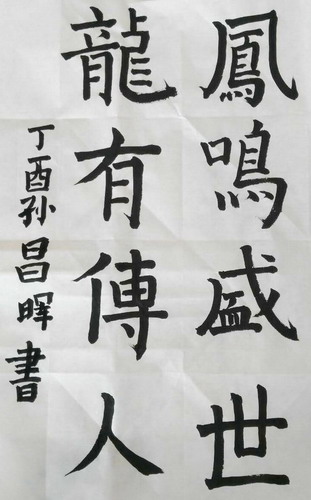 鳳鳴盛世
龍有傳人
丁酉孙昌晖書